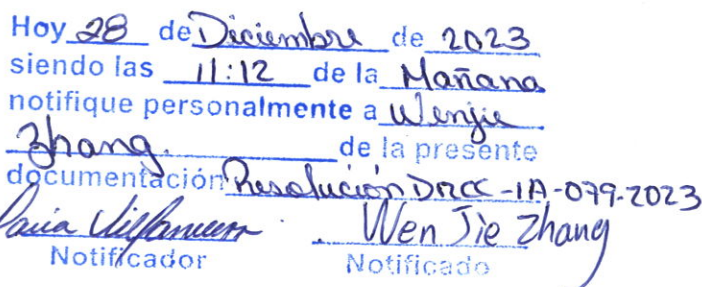 Hoy 28 de Diciembre de 2023
siendo las 11:12 de la Mañana
notifique personalmente a Wenjie
Zhang. de la presente
documentación Resolución DRCC-IA-079-2023
Wen Jie Zhang
Notificador Notificado